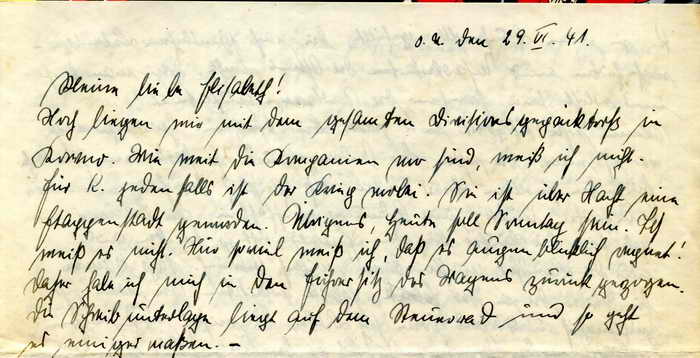 O.U. den 29. VI. 41.
Meine liebe Elisabeth!
Noch liegen wir mit dem gesamten Divisionsgepäcktroß in
Kowno. Wie weit die Kompanien vor sind, weiß ich nicht.
Für K. jedenfalls ist der Krieg vorbei. Sie ist über Nacht eine
Etappenstadt geworden. Übrigens, heute soll Sonntag sein. Ich
weiß es nicht. Nur soviel weiß ich, daß es augenblicklich regnet!
Daher habe ich mich in den Führersitz des Wagens zurückgezogen.
Die Schreibunterlage liegt auf dem Steuerrad und so geht
es einigermaßen. –